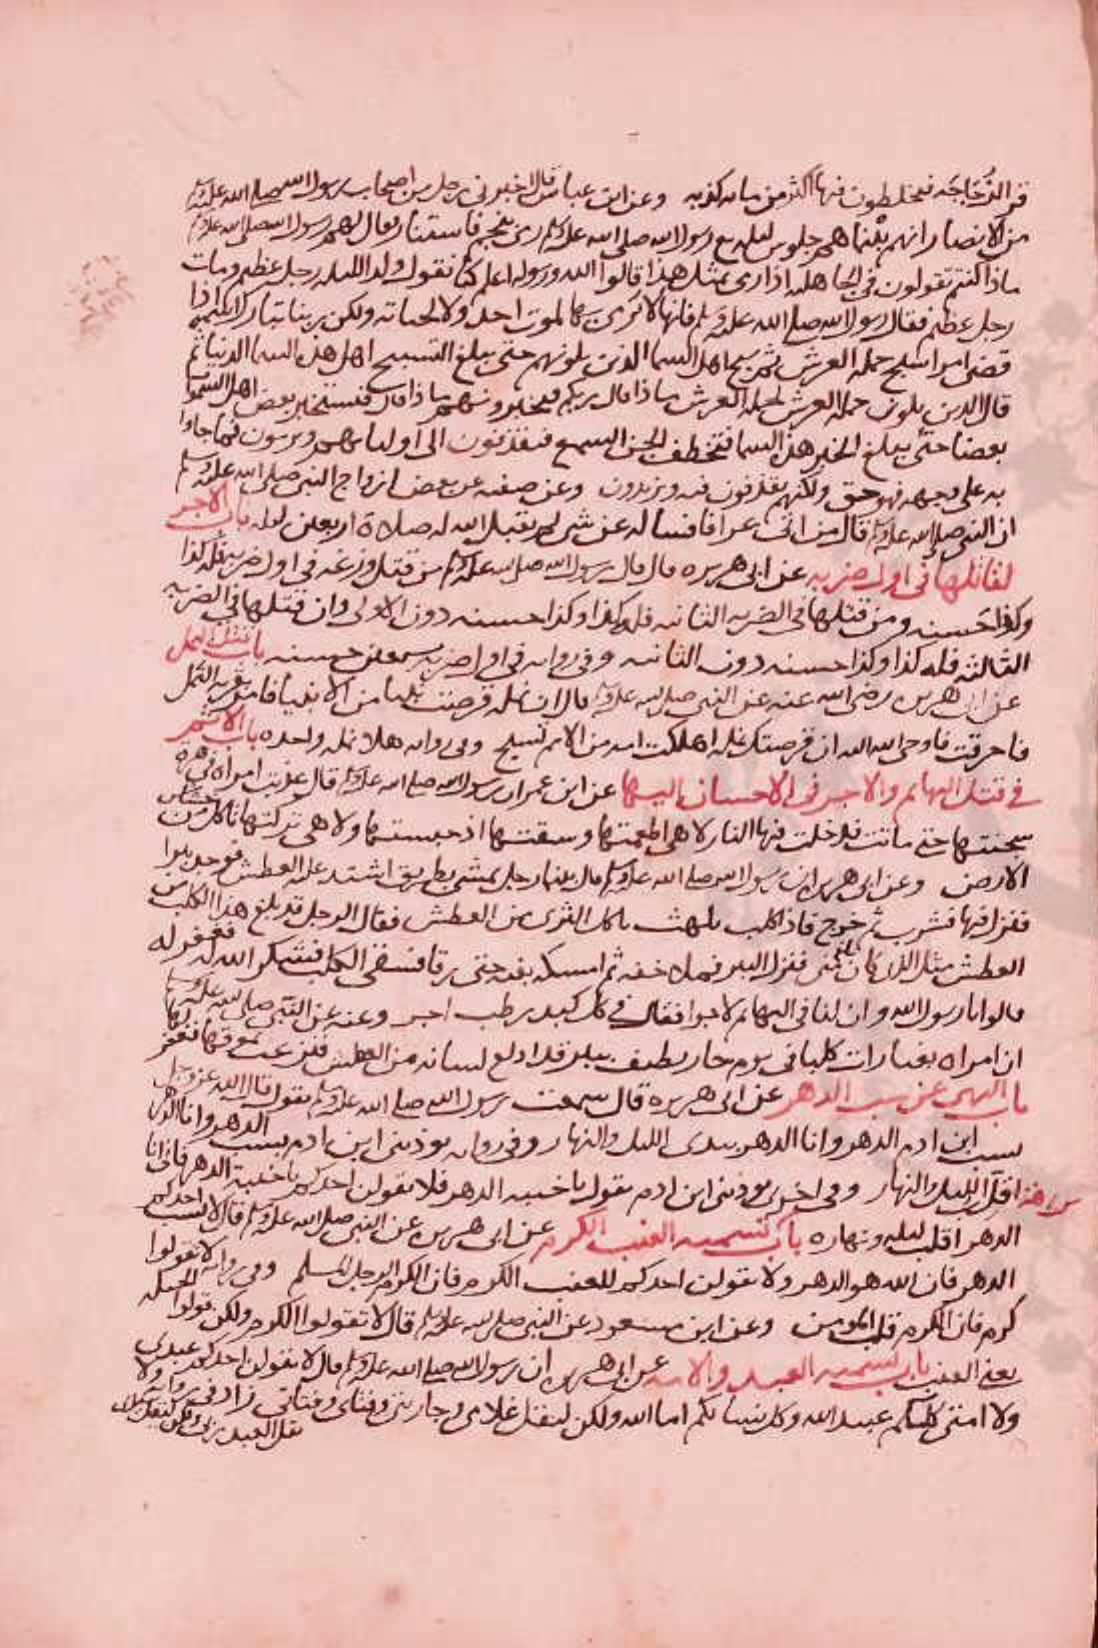 قر الزجاجه فيخلطون فيها اكثر من مايه كذبه وعن ابن عباس قال اخبرني رجل من اصحاب رسول الله صلى الله عليه وسلم
من الانصار انهم بينما هم جلوس ليله مع رسول الله صلى الله عليه وسلم رمى بنجم فاستنار فقال لهم رسول الله صلى الله عليه وسلم
ماذا كنتم تقولون في الجاهليه اذا رمى بمثل هذا قالوا الله ورسوله اعلم كنا نقول ولد الليله رجل عظيم ومات
رجل عظيم فقال رسول الله صلى الله عليه وسلم فانها لا ترمى بها لموت احد ولا لحياته ولكن ربنا تبارك اسمه اذا
قضى امرا سبح حمله العرش ثم سبح اهل السما الذين يلونهم حتى يبلغ التسبيح اهل هذه السما الدنيا ثم
قال الذين يلون حمله العرش لحمله العرش ماذا قال ربكم فيخبرونهم ماذا قال فيستخبر بعض اهل السموات
بعضا حتى يبلغ الخبر هذه السما فتخطف الجن السمع فيقذفون الى اوليايهم ويرمون فما جاوا
به على وجهه فهو حق ولكنهم يقذفون فيه ويزيدون وعن صفيه عن بعض ازواج النبي صلى الله عليه وسلم
ان النبي صلى الله عليه وسلم قال من اتى عرافا فساله عن شي لم يقبل الله له صلاة اربعين ليله باب الاجر
لقاتلها في اول ضربه عن ابي هريره قال قال رسول الله صلى الله عليه وسلم من قتل وزغه في اول ضربه فله كذا
وكذا حسنه ومن قتلها في الضربه الثانيه فله كذا وكذا حسنه دون الاولى وان قتلها في الضربه
الثالثه فله كذا وكذا حسنه دون الثانيه وفي روايه في اول ضربه سبعين حسنه باب قتل النمل
عن ابي هريره رضي الله عنه عن النبي صلى الله عليه وسلم قال ان نمله قرصت نبيا من الانبيا فامر بقريه النمل
فاحرقت فاوحى الله اليه ان قرصتك نمله اهلكت امه من الامم تسبح وفي روايه فهلا نمله واحده باب الاثم
في قتل البهايم والاجر في الاحسان اليها عن ابن عمر ان رسول الله صلى الله عليه وسلم قال عذبت امراه في هره
سجنتها حتى ماتت فدخلت فيها النار لا هي اطعمتها وسقتها اذ حبستها ولا هي تركتها تاكل من خشاش
الارض وعن ابي هريره ان رسول الله صلى الله عليه وسلم قال بينما رجل يمشي بطريق اشتد عليه العطش فوجد بيرا
فنزل فيها فشرب ثم خرج فاذا كلب يلهث ياكل الثرى من العطش فقال الرجل قد بلغ هذا الكلب من
العطش مثل الذي كان بلغ مني فنزل البير فملا خفه ثم امسكه بفيه حتى رقا فسقى الكلب فشكر الله له فغفر له
قالوا يا رسول الله وان لنا في البهايم لاجرا فقال في كل كبد رطب اجر وعنه عن النبي صلى الله عليه وسلم
ان امراه بغيا رات كلبا في يوم حار يطيف ببير قد ادلع لسانه من العطش فنزعت له بموقها فغفر لها
باب النهي عن سب الدهر عن ابي هريره قال سمعت رسول الله صلى الله عليه وسلم يقول قال الله عز وجل
يسب ابن ادم الدهر وانا الدهر بيدي الليل والنهار وفي روايه يوذيني ابن ادم يسب الدهر وانا الدهر
اقلب الليل والنهار وفي اخرى يوذيني ابن ادم يقول يا خيبه الدهر فلا يقولن احدكم يا خيبة الدهر فاني انا
الدهر اقلب ليله ونهاره باب تسميه العنب الكرم عن ابي هريره عن النبي صلى الله عليه وسلم قال لا يسب احدكم
الدهر فان الله هو الدهر ولا يقولن احدكم للعنب الكرم فان الكرم الرجل المسلم وفي روايه لا تقولوا
كرم فان الكرم قلب المومن وعن ابن مسعود عن النبي صلى الله عليه وسلم قال لا تقولوا الكرم ولكن قولوا الحبله
يعني العنب باب تسميه العبد والامه عن ابي هريره ان رسول الله صلى الله عليه وسلم قال لا يقولن احدكم عبدي
ولا امتي كلكم عبيد الله وكل نسايكم اما الله ولكن ليقل غلامي وجاريتي وفتاي وفتاتي زاد في روايه ولا
يقل العبد ربي ولكن ليقل سيدي